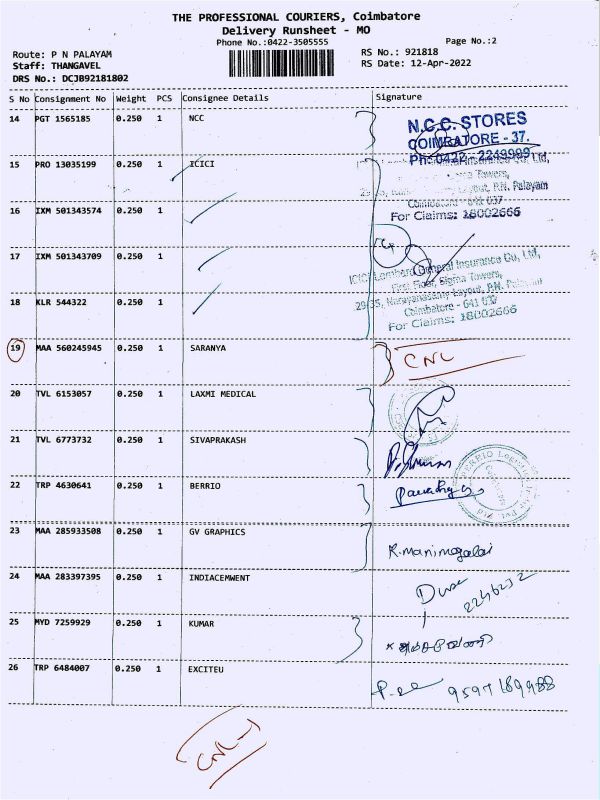 THE PROFESSIONAL COURIERS, Coimbatore
Delivery Runsheet - MO
Phone No.:0422-3505555
Page No.:2
Route: P N PALAYAM
RS No.: 921818
Staff: THANGAVEL
RS Date: 12-Apr-2022
DRS No.: DCJB92181802
S No Consignment No Weight PCS Consignee Details Signature
14 PGT 1565185 0.250 1 NCC
N.C.C. STORES
COIMBATORE - 37.
Ph: 0422 - 2249999
15 PRO 13035199 0.250 1 ICICI
Towers,
Layout, P.N. Palayam
16 IXM 501343574 0.250 1
For Claims: 18002666
17 IXM 501343709 0.250 1
ICICI Lombard General Insurance Co, Ltd,
First Floor, Sigma Towers,
29-35, Narayanasamy Layout, P.N. Palayam
18 KLR 544322 0.250 1
Coimbatore - 641 037
For Claims: 18002666
19 MAA 560245945 0.250 1 SARANYA
CNL
20 TVL 6153057 0.250 1 LAXMI MEDICAL
21 TVL 6773732 0.250 1 SIVAPRAKASH
22 TRP 4630641 0.250 1 BERRIO
23 MAA 285933508 0.250 1 GV GRAPHICS
R.manimegalai
24 MAA 283397395 0.250 1 INDIACEMWENT
2246232
25 MYD 7259929 0.250 1 KUMAR
26 TRP 6484007 0.250 1 EXCITEU
9597189988
CNL-1